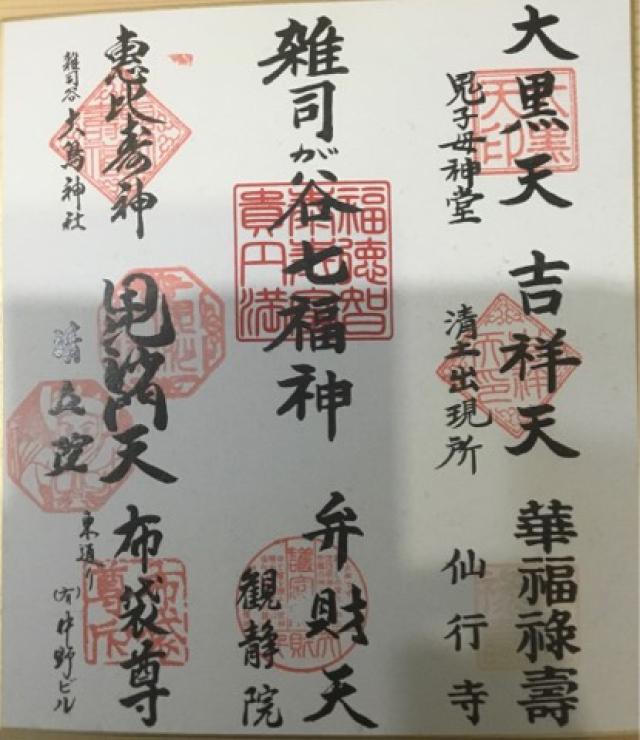 大黒天
鬼子母神堂
吉祥天
清土出現所
華福禄壽
仙行寺
雑司が谷七福神
弁財天
観静院
恵比寿神
雑司谷
大鳥神社
毘沙門天
清立院
布袋尊
東通り
(有)中野ビル
大黒天印
福徳智
貴円満